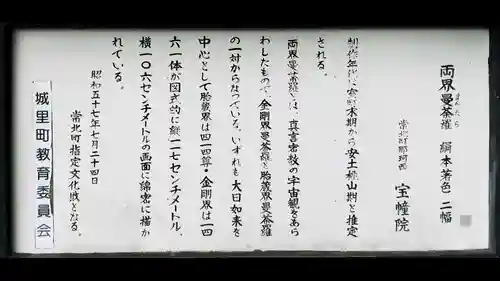 両界曼荼羅 絹本著色 二幅
まんだら
常北町那珂西 宝幢院
制作年代は室町末期から安土桃山期と推定
される。
両界曼荼羅とは、真言密教の宇宙観をあら
わしたもので、金剛界曼荼羅と胎蔵界曼荼羅
の一対からなっている。いずれも大日如来を
中心として胎蔵界は四一四尊・金剛界は一四
六一体が図式的に縦一二七センチメートル、
横一〇六センチメートルの画面に綿密に描か
れている。
昭和五十七年七月二十四日
常北町指定文化財となる。
城里町教育委員会